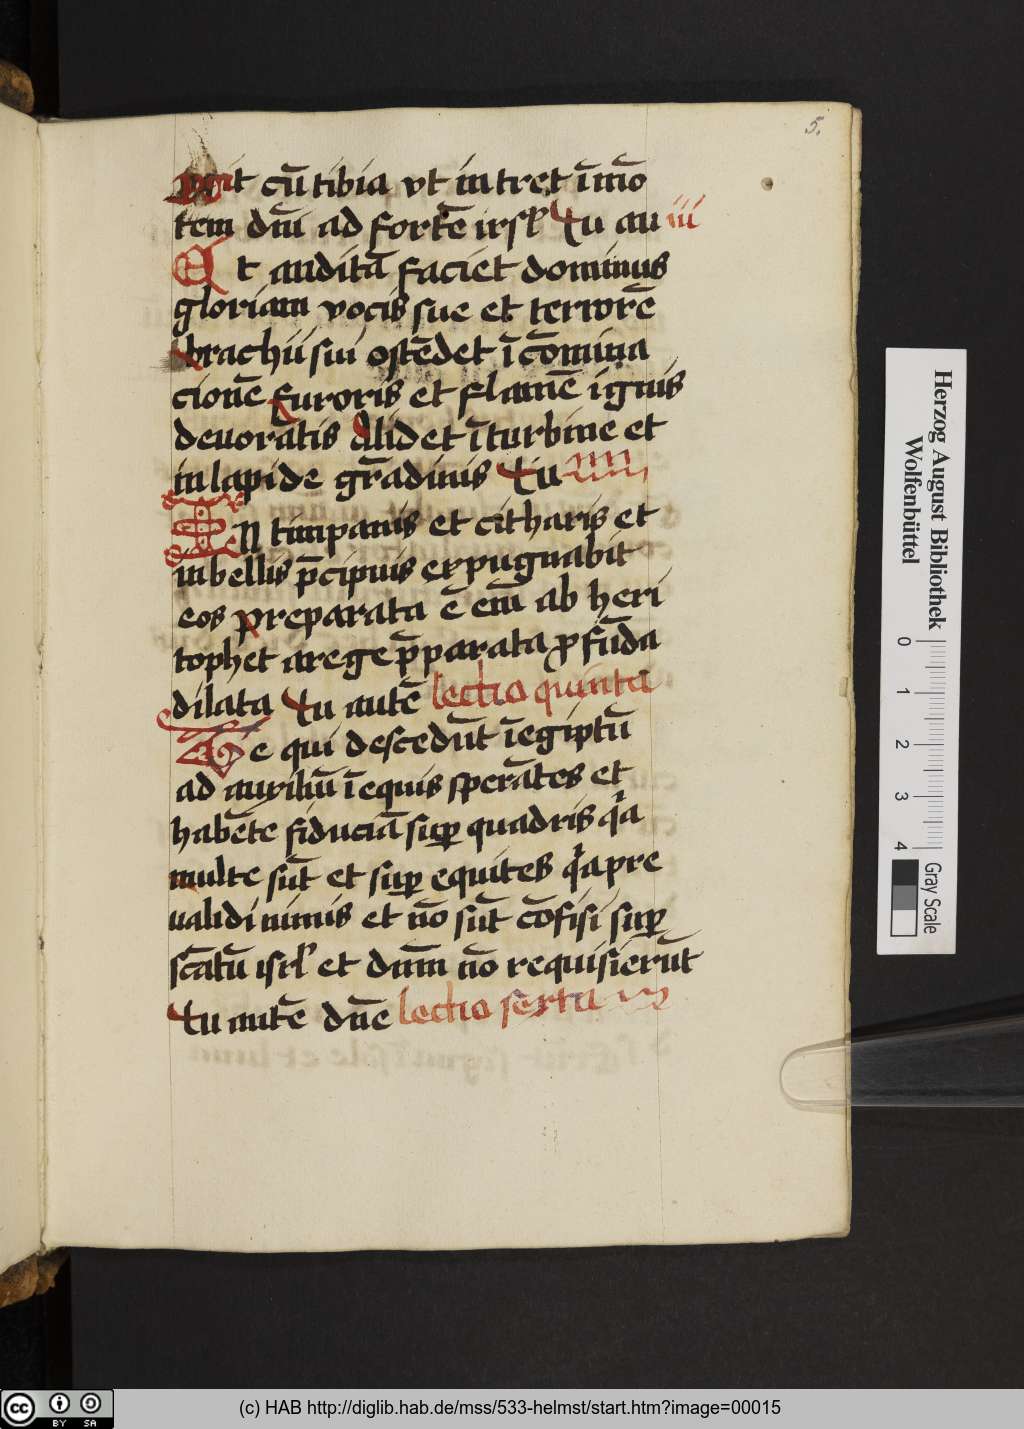 5.
git cū tibia vt intret ī mō
tem dm̄ ad fortē isrl̓ Tu au iii
Et auditā faciet dominus
gloriam vocis sue et terrorē
brachii sui ostēdet ī cōmina
cionē furoris et flamē ignis
devorātis Alidet ī turbine et
in lapide grādinis Tu iiii
In timpanis et citharis et
in bellis p̄cipuis expugnabit
eos preparata ē em̄ ab heri
tophet a rege p̄parata ꝓfūda
dilata Tu autē lectio quinta
Ve qui descedūt ī egiptū
ad auxiliū ī equis sperātes et
habēte fiduciā suꝑ quadris q̓a
multe sūt et suꝑ equites q̓a pre
ualidi nimis et nō sūt cōfisi suꝑ
scātū isrl̓ et dnm̄ nō requisierūt
Tu autē dn̄e lectio sexta
Herzog August Bibliothek
Wolfenbüttel
0 1 2 3 4
Gray Scale
cc BY SA
(c) HAB http://diglib.hab.de/mss/533-helmst/start.htm?image=00015